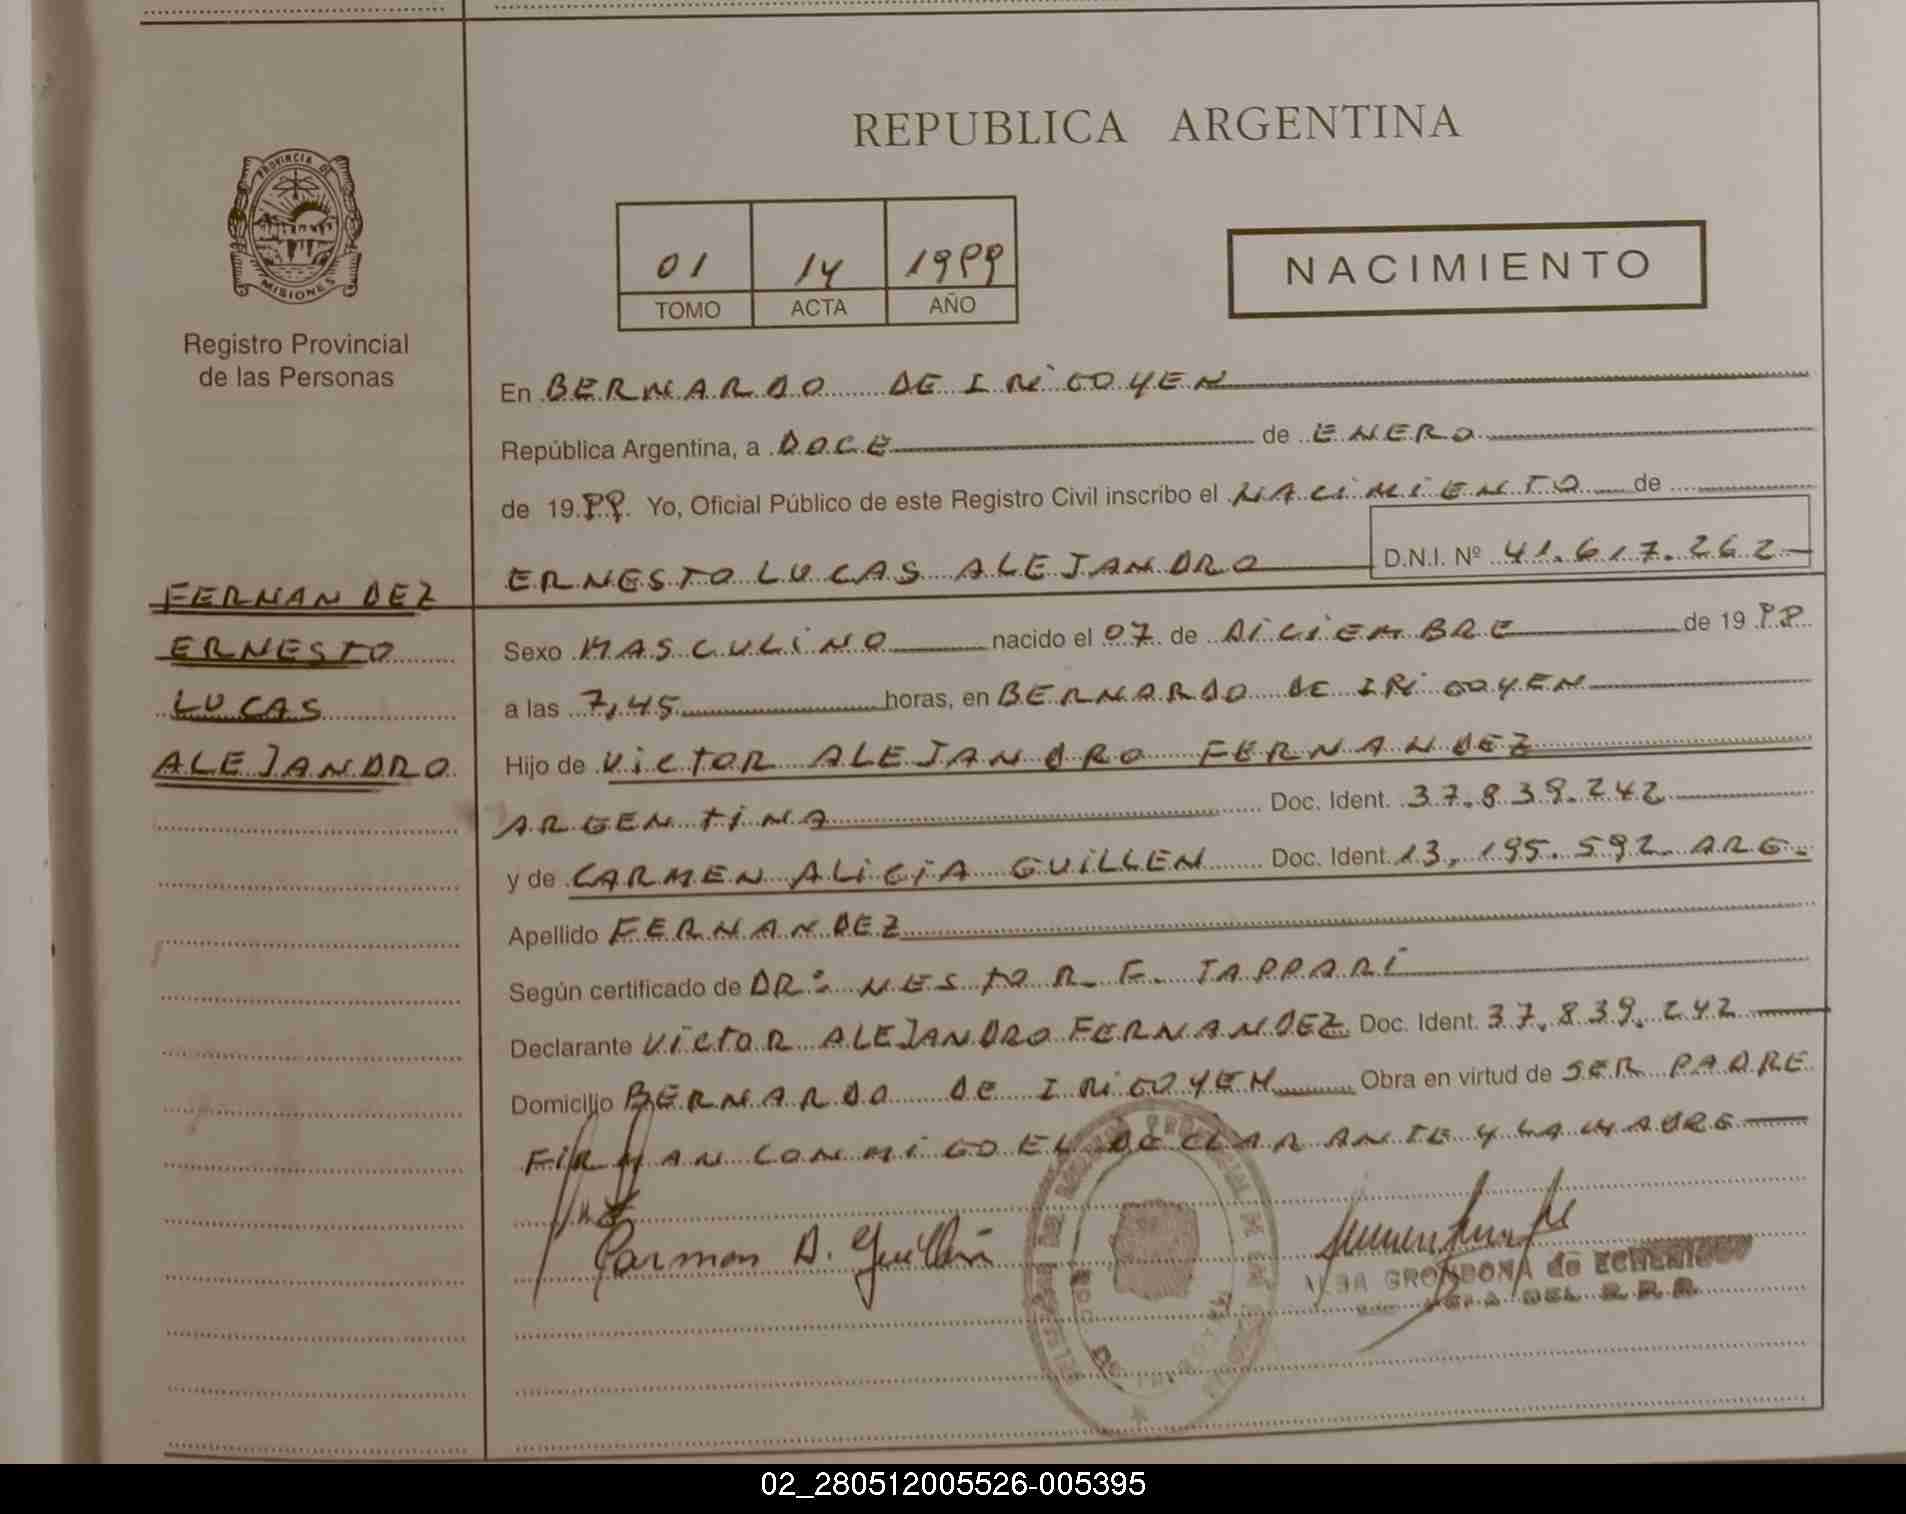 PROVINCIA DE
MISIONES
Registro Provincial
de las Personas
FERNANDEZ
ERNESTO
LUCAS
ALEJANDRO
REPUBLICA ARGENTINA
01 14 1999
TOMO ACTA AÑO
NACIMIENTO
En BERNARDO DE IRIGOYEN
República Argentina, a DOCE de ENERO
de 1999. Yo, Oficial Público de este Registro Civil inscribo el NACIMIENTO de
ERNESTO LUCAS ALEJANDRO D.N.I. Nº 41.617.262
Sexo MASCULINO nacido el 07 de DICIEMBRE de 1998
a las 7,45 horas, en BERNARDO DE IRIGOYEN
Hijo de VICTOR ALEJANDRO FERNANDEZ
ARGENTINA Doc. Ident. 37.839.242
y de CARMEN ALICIA GUILLEN Doc. Ident. 13.195.592 ARG.
Apellido FERNANDEZ
Según certificado de DR: NESTOR F. TAPPARI
Declarante VICTOR ALEJANDRO FERNANDEZ Doc. Ident. 37.839.242
Domicilio BERNARDO DE IRIGOYEN Obra en virtud de SER PADRE
FIRMAN CONMIGO EL DECLARANTE Y LA MADRE
Carmen A. Guillén
ALBA GRONDONA de
DEL R.P.P.
02_280512005526-005395